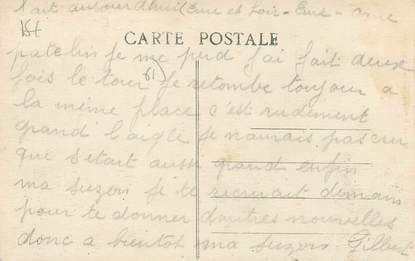 fait aujourd'hui Eure et Loir - Eure -
CARTE POSTALE
patelin je me perd j'ai fait deux
fois le tour je retombe toujour a
la même place c'est rudement
grand Laigle je n'aurais pas cru
que s'etait aussi grand enfin
ma suzon je te recrirait demain
pour te donner d'autres nouvelles
donc a bientot ma suzon Gilbert
61